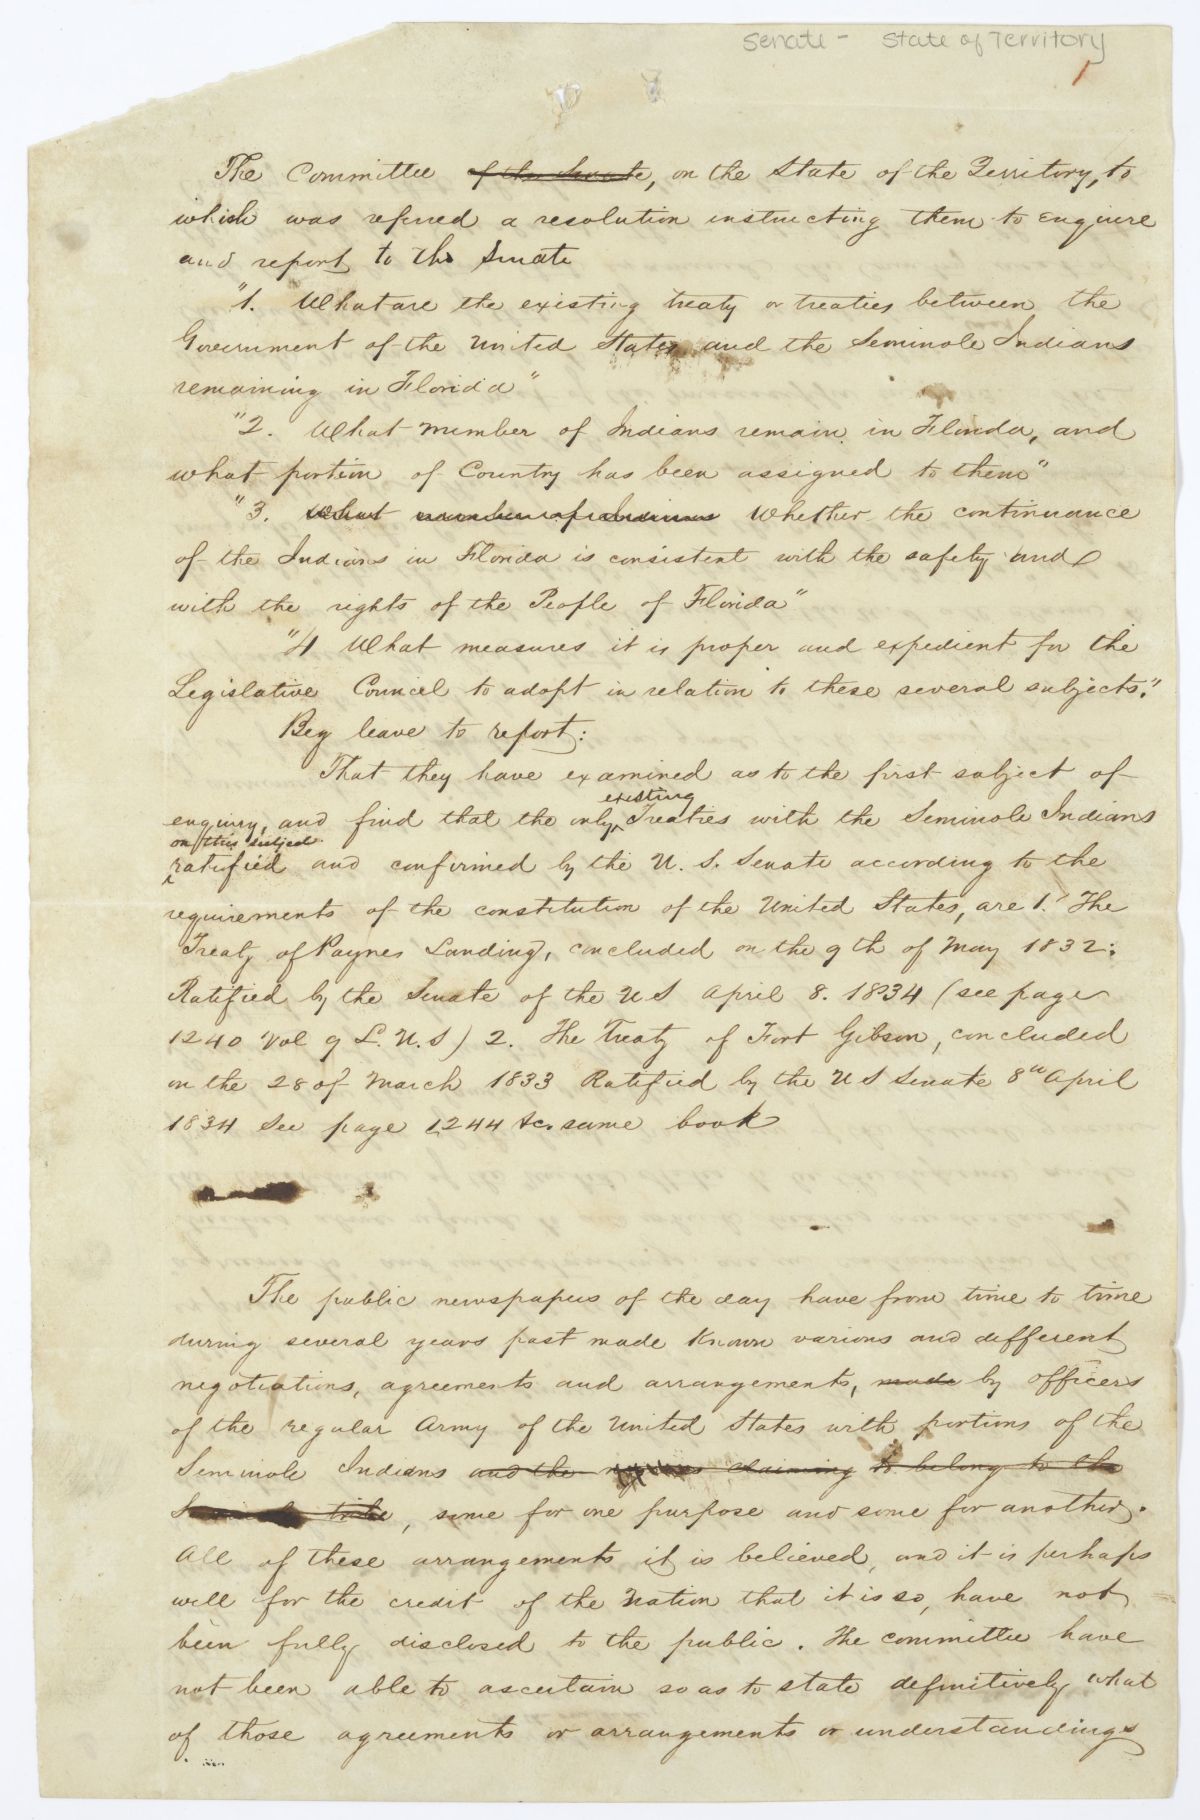 Senate - State of Territory
1
The Committee of the Senate, on the State of the Territory, to
which was referred a resolution instructing them to enquire
and report to the Senate
"1. What are the existing treaty or treaties between the
Government of the United States and the Seminole Indians
remaining in Florida"
"2. What number of Indians remain in Florida, and
what portion of Country has been assigned to them"
"3. What number of Indians Whether the continuance
of the Indians in Florida is consistent with the safety and
with the rights of the People of Florida"
"4 What measures it is proper and expedient for the
Legislative Council to adopt in relation to these several subjects."
Beg leave to report:
That they have examined as to the first subject of
existing
enquiry, and find that the only Treaties with the Seminole Indians
on this subject
ratified and confirmed by the U. S. Senate according to the
requirements of the constitution of the United States, are 1. The
Treaty of Paynes Landing, concluded on the 9th of May 1832:
Ratified by the Senate of the U S April 8. 1834 (see page
1240 Vol 9 L. U. S) 2. The Treaty of Fort Gibson, concluded
on the 28 of March 1833 Ratified by the U S Senate 8th April
1834 See page 1244 &c. same book
The public newspapers of the day have from time to time
during several years past made known various and different
negotiations, agreements and arrangements, made by officers
of the regular Army of the United States with portions of the
Seminole Indians and the claiming to belong to the
Seminole tribe, some for one purpose and some for another.
All of these arrangements it is believed, and it is perhaps
well for the credit of the Nation that it is so, have not
been fully disclosed to the public. The committee have
not been able to ascertain so as to state definitively what
of those agreements or arrangements or understandings